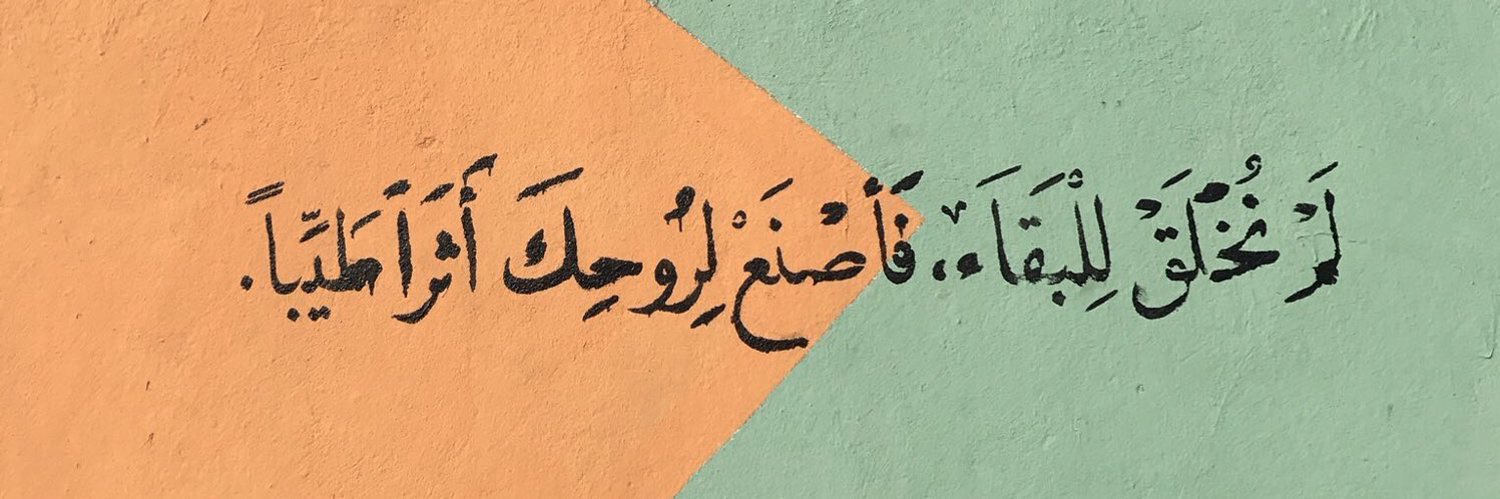 لَمْ نُخْلَقْ لِلْبَقَاءَ، فَأَصْنَعْ لِرُوحِكَ أَثَرَاً طَيِّبَاً.